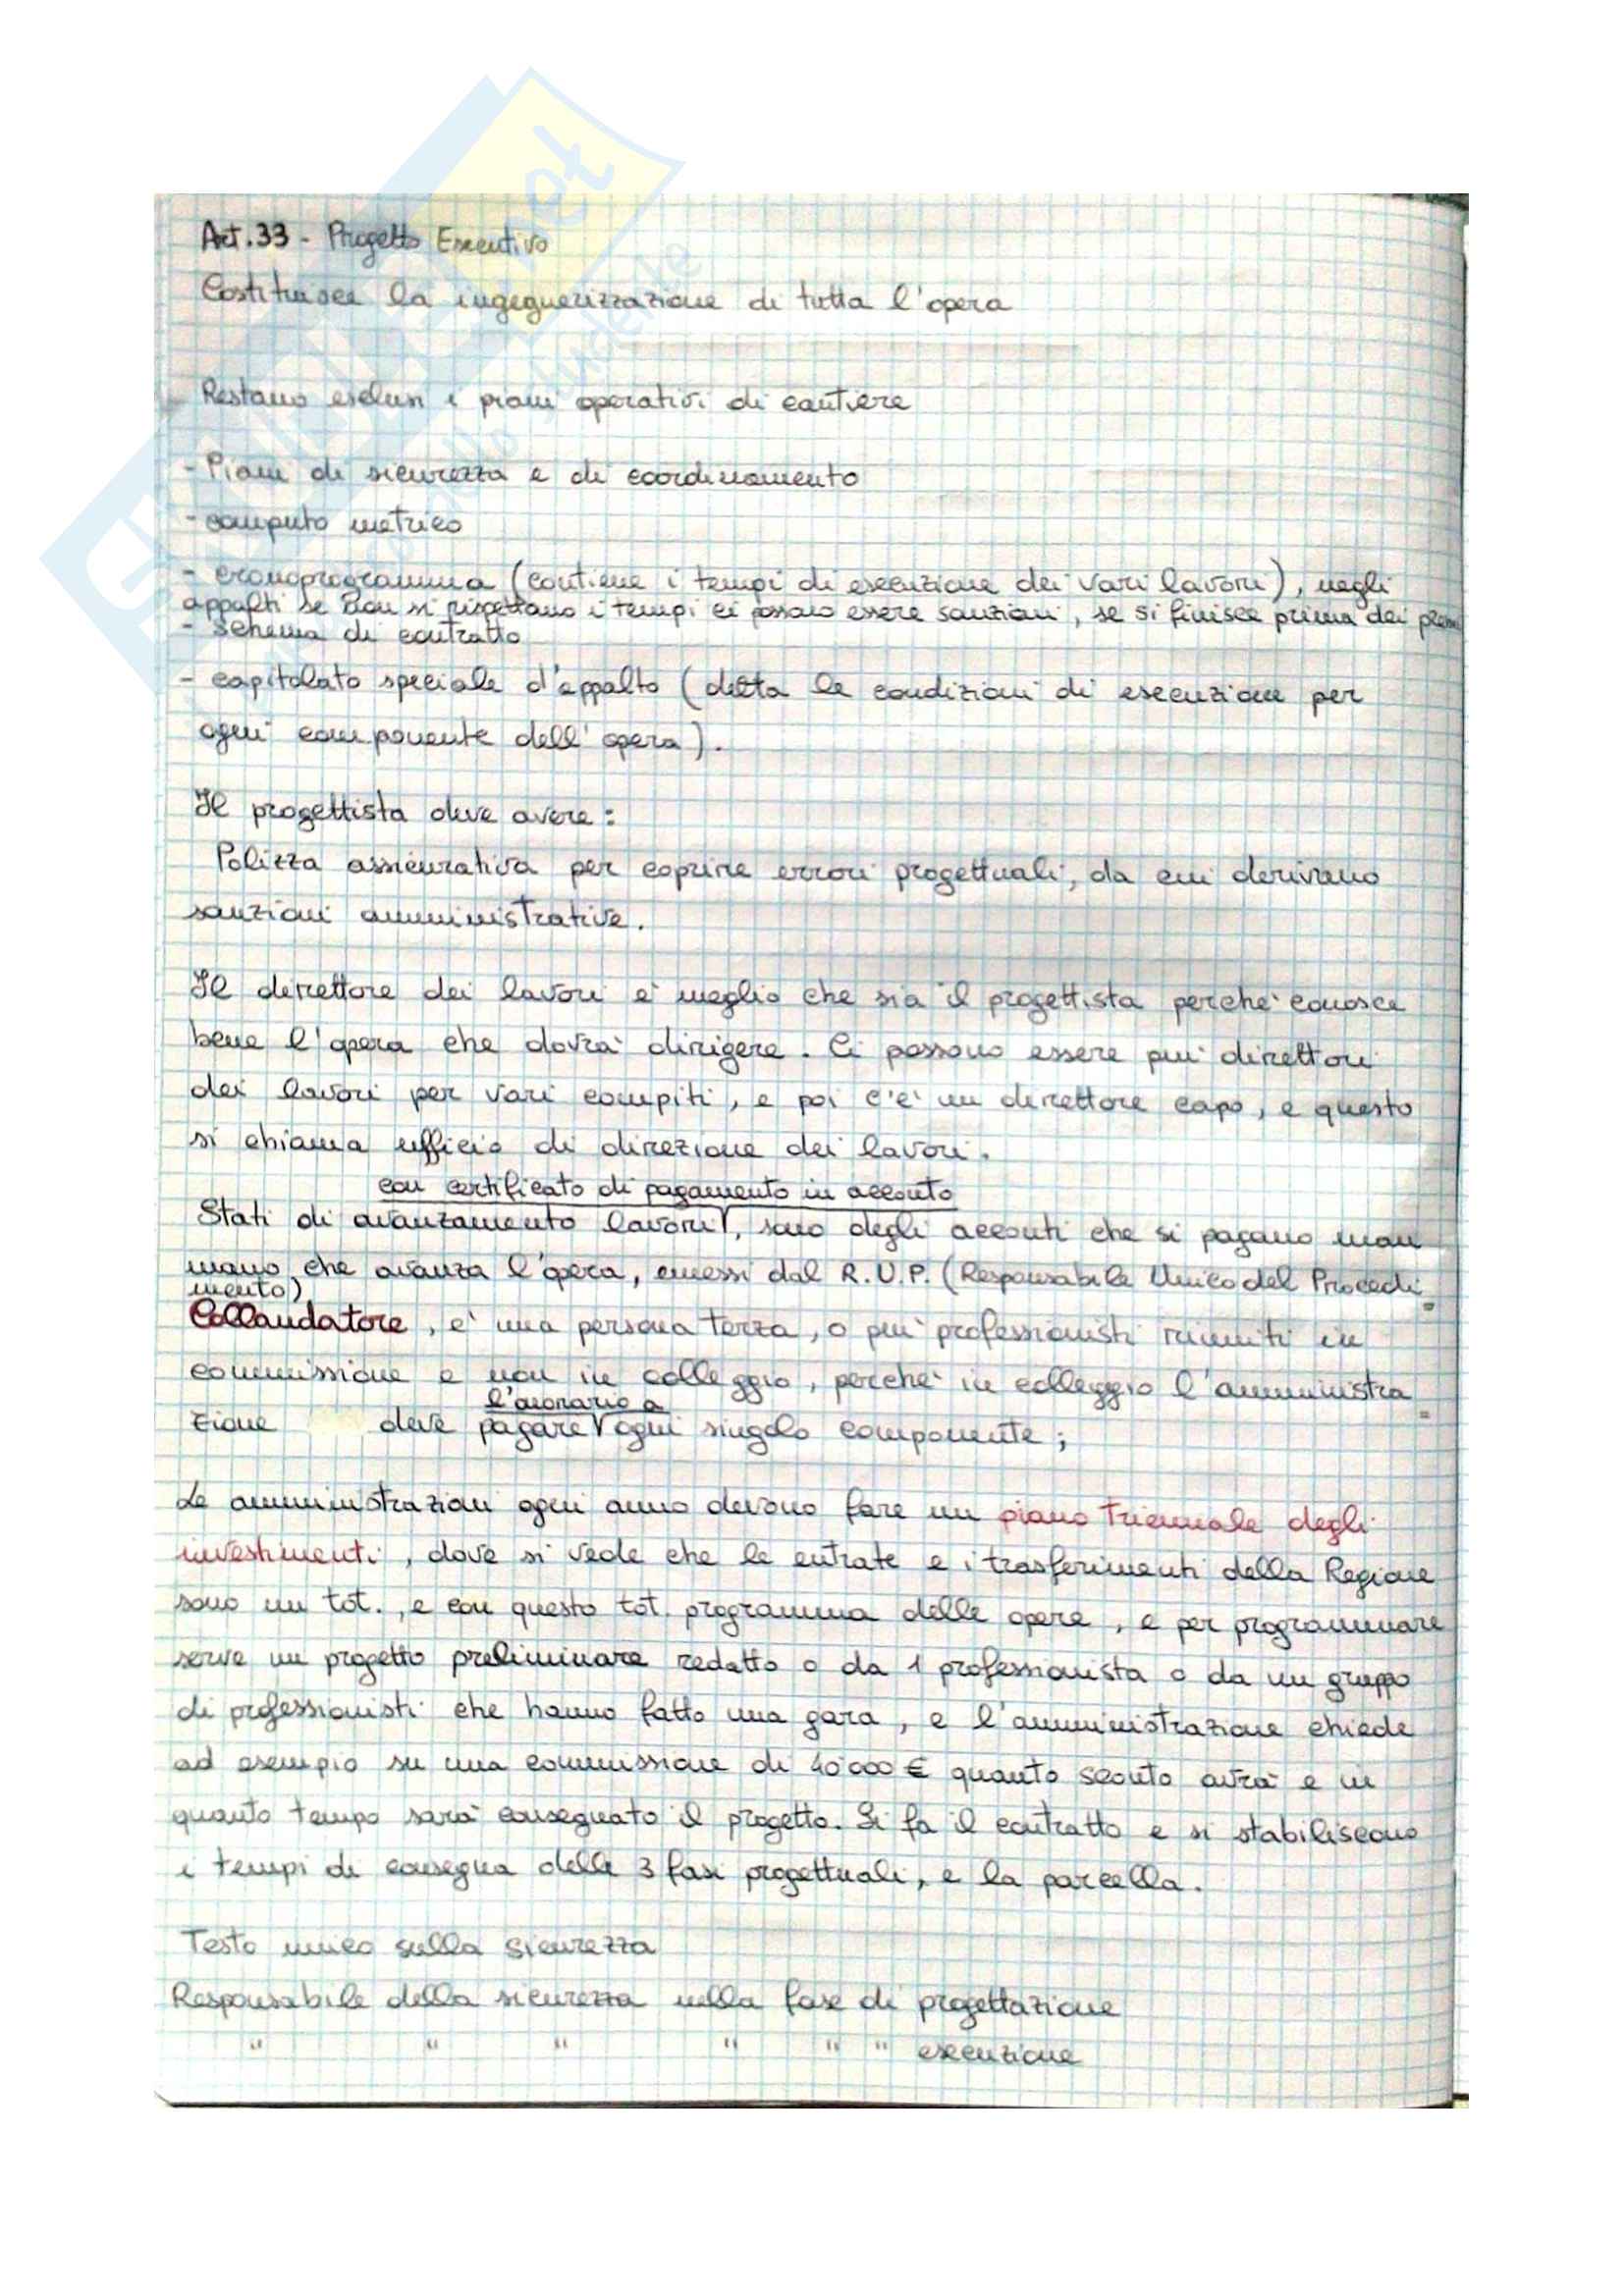 Art.33 - Progetto Esecutivo
Costituisce la ingegnerizzazione di tutta l'opera
Restano esclusi i piani operativi di cantiere
- Piani di sicurezza e di coordinamento
- computo metrico
- cronoprogramma (contiene i tempi di esecuzione dei vari lavori), negli
appalti se non si rispettano i tempi ci possono essere sanzioni, se si finisce prima dei
- schema di contratto
- capitolato speciale d'appalto (detta le condizioni di esecuzione per
ogni componente dell'opera).
Il progettista deve avere:
Polizza assicurativa per coprire errori progettuali, da cui derivano
sanzioni amministrative.
Il direttore dei lavori e' meglio che sia il progettista perche' conosce
bene l'opera che dovra' dirigere. Ci possono essere piu' direttori
dei lavori per vari compiti, e poi c'e' un direttore capo, e questo
si chiama ufficio di direzione dei lavori.
con certificato di pagamento in acconto
Stati di avanzamento lavori, sono degli acconti che si pagano man
mano che avanza l'opera, emessi dal R.U.P. (Responsabile Unico del Procedi
mento)
Collaudatore, e' una persona terza, o piu' professionisti riuniti in
commissione e non in colleggio, perche' in colleggio l'amministra
l'onorario a
zione deve pagare ogni singolo componente;
Le amministrazioni ogni anno devono fare un piano triennale degli
investimenti, dove si vede che le entrate e i trasferimenti della Regione
sono un tot., e con questo tot. programma delle opere, e per programmare
serve un progetto preliminare redatto o da 1 professionista o da un gruppo
di professionisti che hanno fatto una gara, e l'amministrazione chiede
ad esempio su una commissione di 40'000 € quanto sconto avra' e in
quanto tempo sara' consegnato il progetto. Si fa il contratto e si stabiliscono
i tempi di consegna delle 3 fasi progettuali, e la parcella.
Testo unico sulla sicurezza
Responsabile della sicurezza nella fase di progettazione
" " " " " " esecuzione